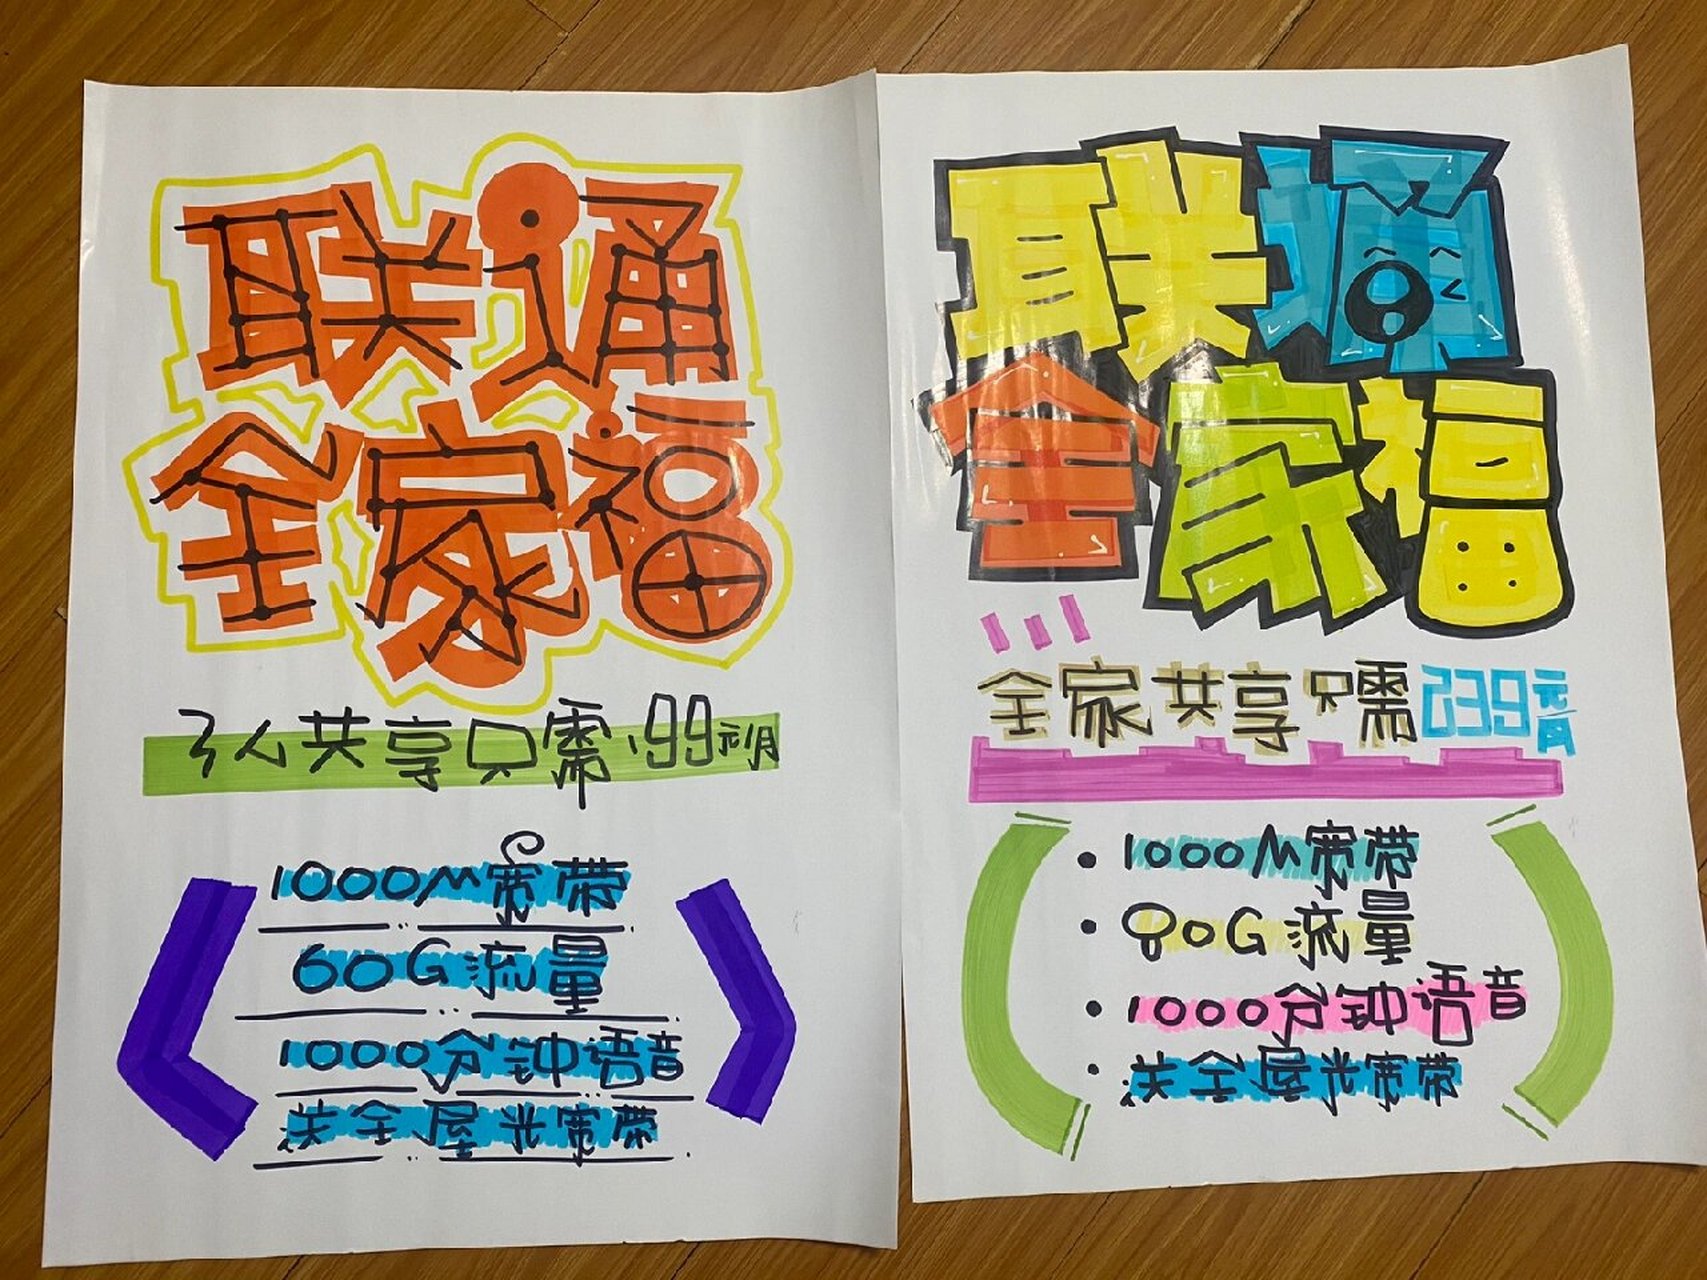 联通
全家福
3人共享只需199元/月
1000M宽带
60G流量
1000分钟语音
送全屋光宽带
联通
全家福
全家共享只需239元/月
• 1000M宽带
• 80G流量
• 1000分钟语音
• 送全屋光宽带